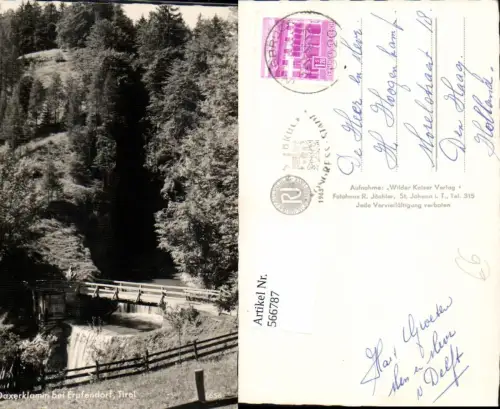 Daxerklamm bei Erpfendorf, Tirol
De Heer en Mevr
H. Hoogenkamp
18.
Den Haag
Holland.
Aufnahme: „Wilder Kaiser Verlag“
Fotohaus R. Jöchler, St. Johann i. T., Tel. 319
Jede Vervielfältigung verboten
Artikel Nr.
566787
66
Hart. Groeten
Men en Mevr
v Delft